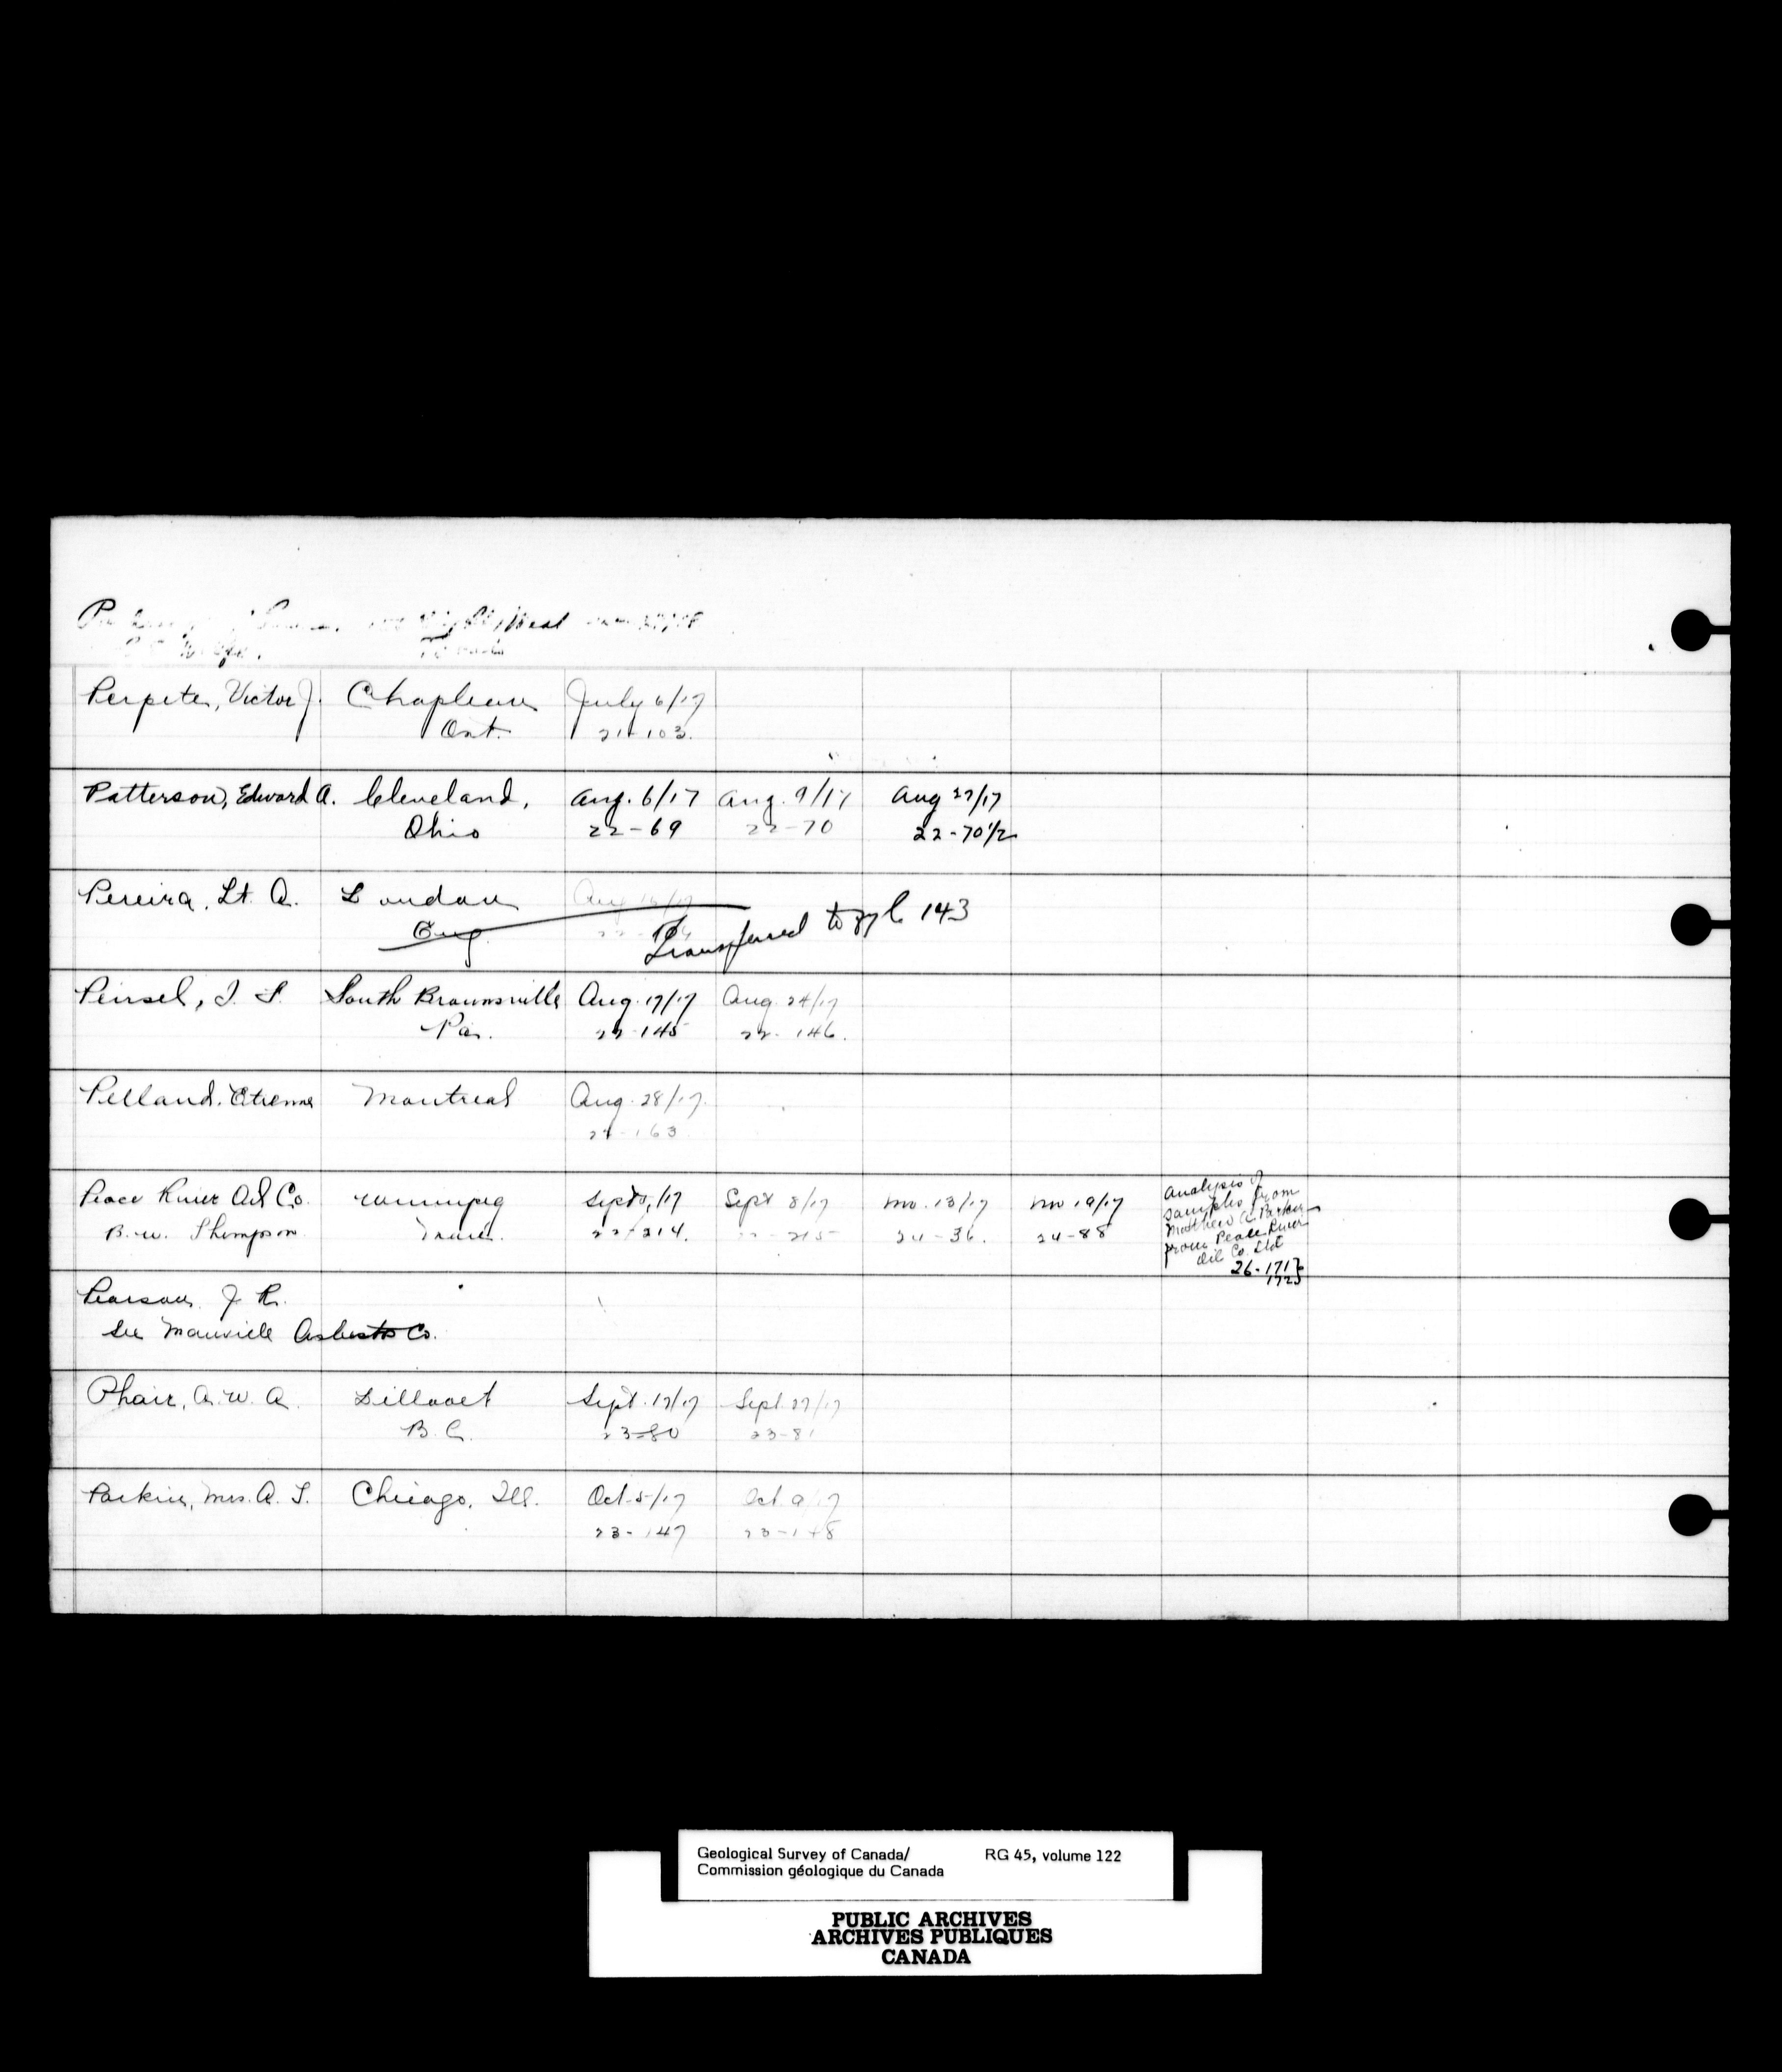 Perpete, Victor J. Chapleau July 6/17
Ont. 21-103.
Patterson, Edward A. Cleveland, Aug. 6/17 Aug. 9/17 Aug 27/17
Ohio 22-69 22-70 22-70½
Pereira, Lt. A. London
Eng. Transferred to 143
Pensel, J. S. South Brownsville Aug. 17/17 Aug. 24/17
Pa. 22-145 22-146.
Pelland, Etienne Montreal Aug. 28/17
22-163
Peace River Oil Co. Winnipeg Sept 8/17 No. 13/17 No 19/17
B. W. Thompson 22-214. 22-215 24-36. 24-88
Analysis of
samples from
Matthew A. Parker
from Peace River
Oil Co. Ltd
26-171}
172}
Pearson, J. R.
See Manville Asbestos Co.
Phair, A. W. A. Lillooet Sept. 17/17 Sept 27/17
B.C. 23-80 23-81
Parkin, Mrs. A. S. Chicago, Ill. Oct 5/17 Oct 9/17
23-147 23-148
Geological Survey of Canada/ RG 45, volume 122
Commission géologique du Canada
PUBLIC ARCHIVES
ARCHIVES PUBLIQUES
CANADA